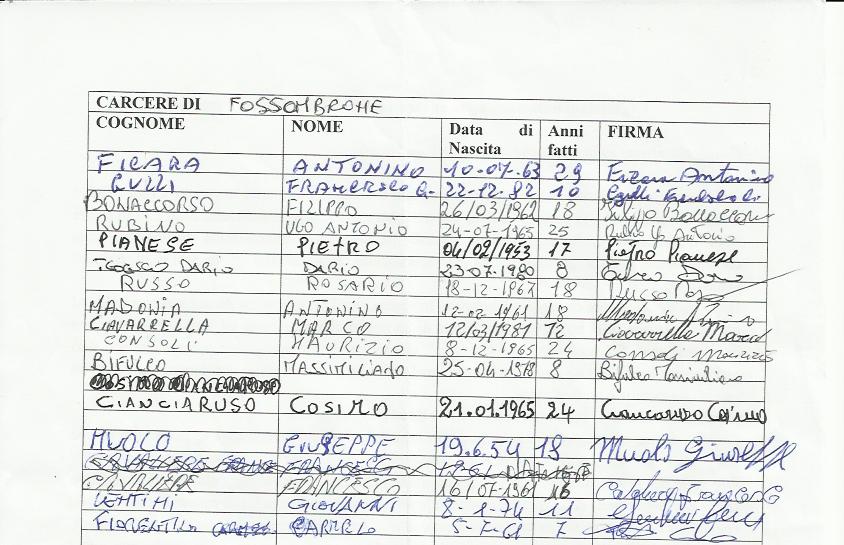 CARCERE DI FOSSOMBRONE
COGNOME NOME Data di Nascita Anni fatti FIRMA
FICARA ANTONINO 10-07-63 29 Ficara Antonino
GULLI FRANCESCO G. 22-12-82 10
BONACCORSO FILIPPO 26/03/1962 18 Filippo Bonaccorso
RUBINO UGO ANTONIO 24-07-1965 25 Antonio
PIANESE PIETRO 04/02/1953 17 Pietro Pianese
DARIO DARIO 23-07-1980 8
RUSSO ROSARIO 18-12-1967 18 Russo
MADONIA ANTONINO 12-02-1961 18
CIAVARRELLA MARCO 12/03/1981 12 Ciavarrella Marco
CONSOLI MAURIZIO 8-12-1965 24 Consoli Maurizio
BIFULCO MASSIMILIANO 25-04-1978 8 Bifulco Massimiliano
CIANCIARUSO COSIMO 21.01.1965 24 Cianciaruso Cosimo
MUOLO GIUSEPPE 19.6.54 19 Muolo Giuseppe
FRANCESCO
CAVALIERE FRANCESCO 16/07-1961 16 Francesco
LENTINI GIOVANNI 8-1-74 11
FIORENTINO CARMELO 5-7-61 7